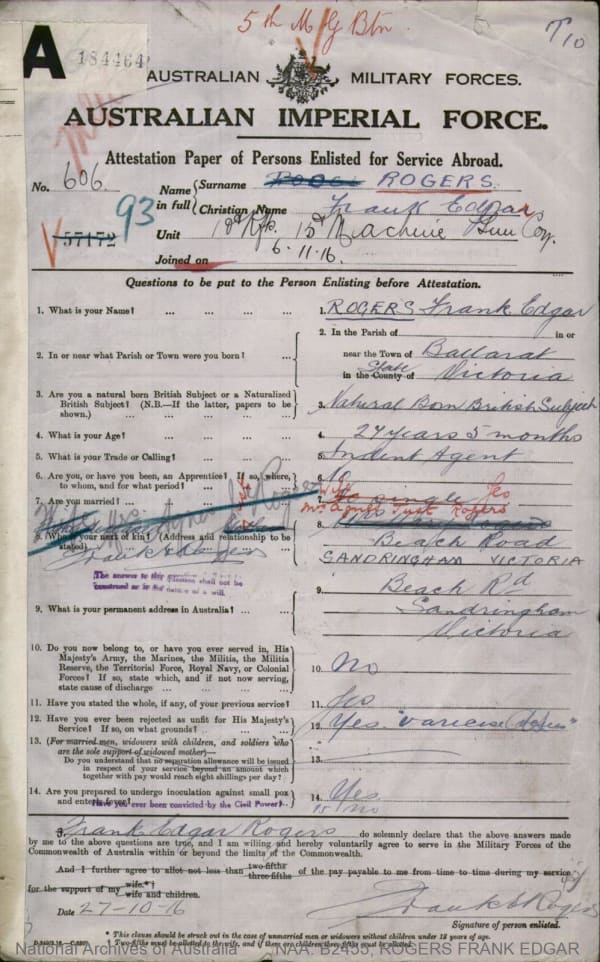 5th M G Btn
A
184464
AUSTRALIAN MILITARY FORCES.
AUSTRALIAN IMPERIAL FORCE.
Attestation Paper of Persons Enlisted for Service Abroad.
No. 606. Name in full { Surname ROGERS.
Christian Name Frank Edgar
57172 93 Unit 15th Machine Gun Coy.
Joined on 6-11-16.
Questions to be put to the Person Enlisting before Attestation.
1. What is your Name? ... ... ... 1. ROGERS Frank Edgar
2. In or near what Parish or Town were you born? ... 2. In the Parish of in or
near the Town of Ballarat
in the County of State Victoria
3. Are you a natural born British Subject or a Naturalized
British Subject? (N.B.—If the latter, papers to be
shown.) ... ... ... 3. Natural Born British Subject
4. What is your Age? ... ... ... 4. 27 years 5 months
5. What is your Trade or Calling? ... ... 5. Indent Agent
6. Are you, or have you been, an Apprentice? If so, where,
to whom, and for what period? ... ... 6. No
7. Are you married? ... ... ... 7. single Yes
Wife
Mrs Agnes Rogers
8. Who is your next of kin? (Address and relationship to be
stated) 8. Beach Road
SANDRINGHAM VICTORIA
Frank E Rogers
The answer to this question shall not be
construed as in the nature of a will.
9. What is your permanent address in Australia? ... 9. Beach Rd
Sandringham
Victoria
10. Do you now belong to, or have you ever served in, His
Majesty's Army, the Marines, the Militia, the Militia
Reserve, the Territorial Force, Royal Navy, or Colonial
Forces? If so, state which, and if not now serving,
state cause of discharge ... ... ... 10. No
11. Have you stated the whole, if any, of your previous service? 11.
12. Have you ever been rejected as unfit for His Majesty's
Service? If so, on what grounds? ... ... 12. Yes "varicose
13. (For married men, widowers with children, and soldiers who
are the sole support of widowed mother)—
Do you understand that no separation allowance will be issued
in respect of your service beyond an amount which
together with pay would reach eight shillings per day? 13.
14. Are you prepared to undergo inoculation against small pox
and enteric fever? 14. Yes
Have you ever been convicted by the Civil Power? 15 No
I, Frank Edgar Rogers do solemnly declare that the above answers made
by me to the above questions are true, and I am willing and hereby voluntarily agree to serve in the Military Forces of the
Commonwealth of Australia within or beyond the limits of the Commonwealth.
And I further agree to allot not less than two-fifths three-fifths of the pay payable to me from time to time during my service
for the support of my wife.*† wife and children.
Date 27-10-16 Frank E Rogers
Signature of person enlisted.
* This clause should be struck out in the case of unmarried men or widowers without children under 18 years of age.
† Two-fifths must be allotted to the wife, and if there are children three-fifths must be allotted.
National Archives of Australia NAA: B2455, ROGERS FRANK EDGAR